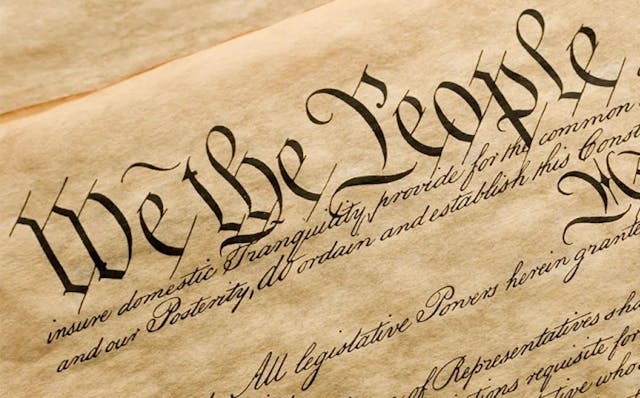 We the People
insure domestic Tranquility, provide for the common
and our Posterity, do ordain and establish this Const
All legislative Powers herein grante
of Representatives sha
tions requisite for
tive who